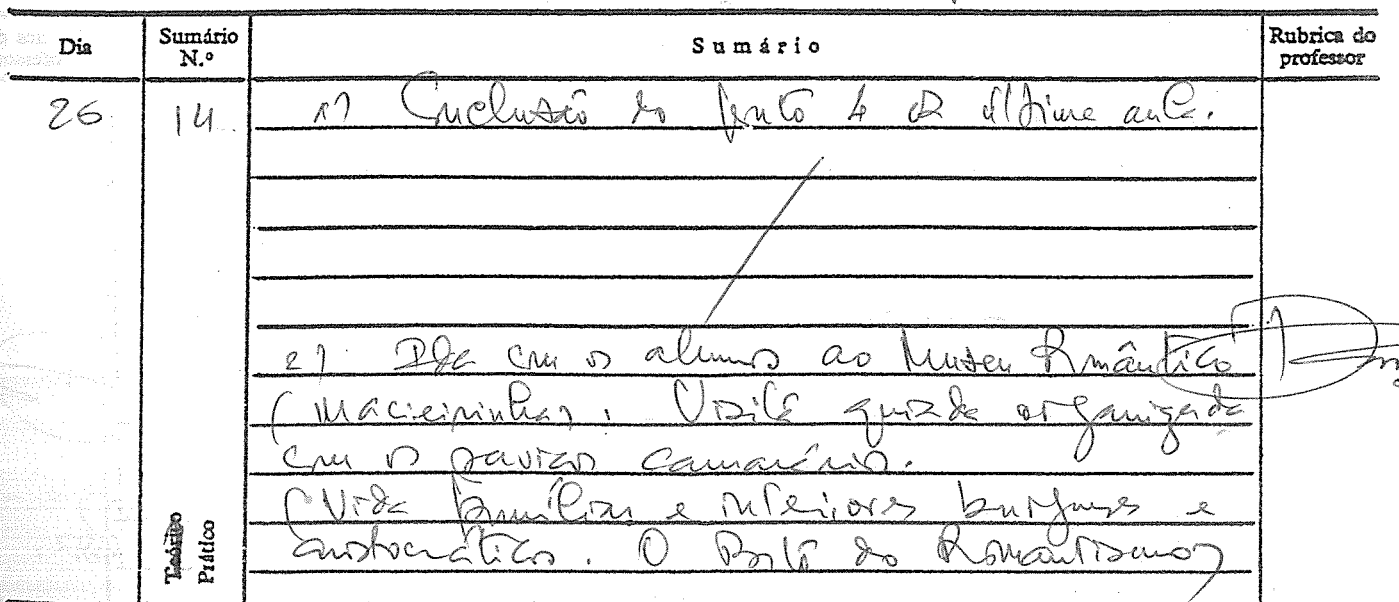 Dia Sumário N.º Sumário Rubrica do professor
26 14 1) Conclusão do ponto 4 da última aula.
2) Ida com os alunos ao Museu Romântico
(Macieirinha). Visita guiada organizada
com os serviços camarários.
(Vida familiar e interiores burgueses e
aristocráticos. O Porto do Romantismo)
Teórico
Prático